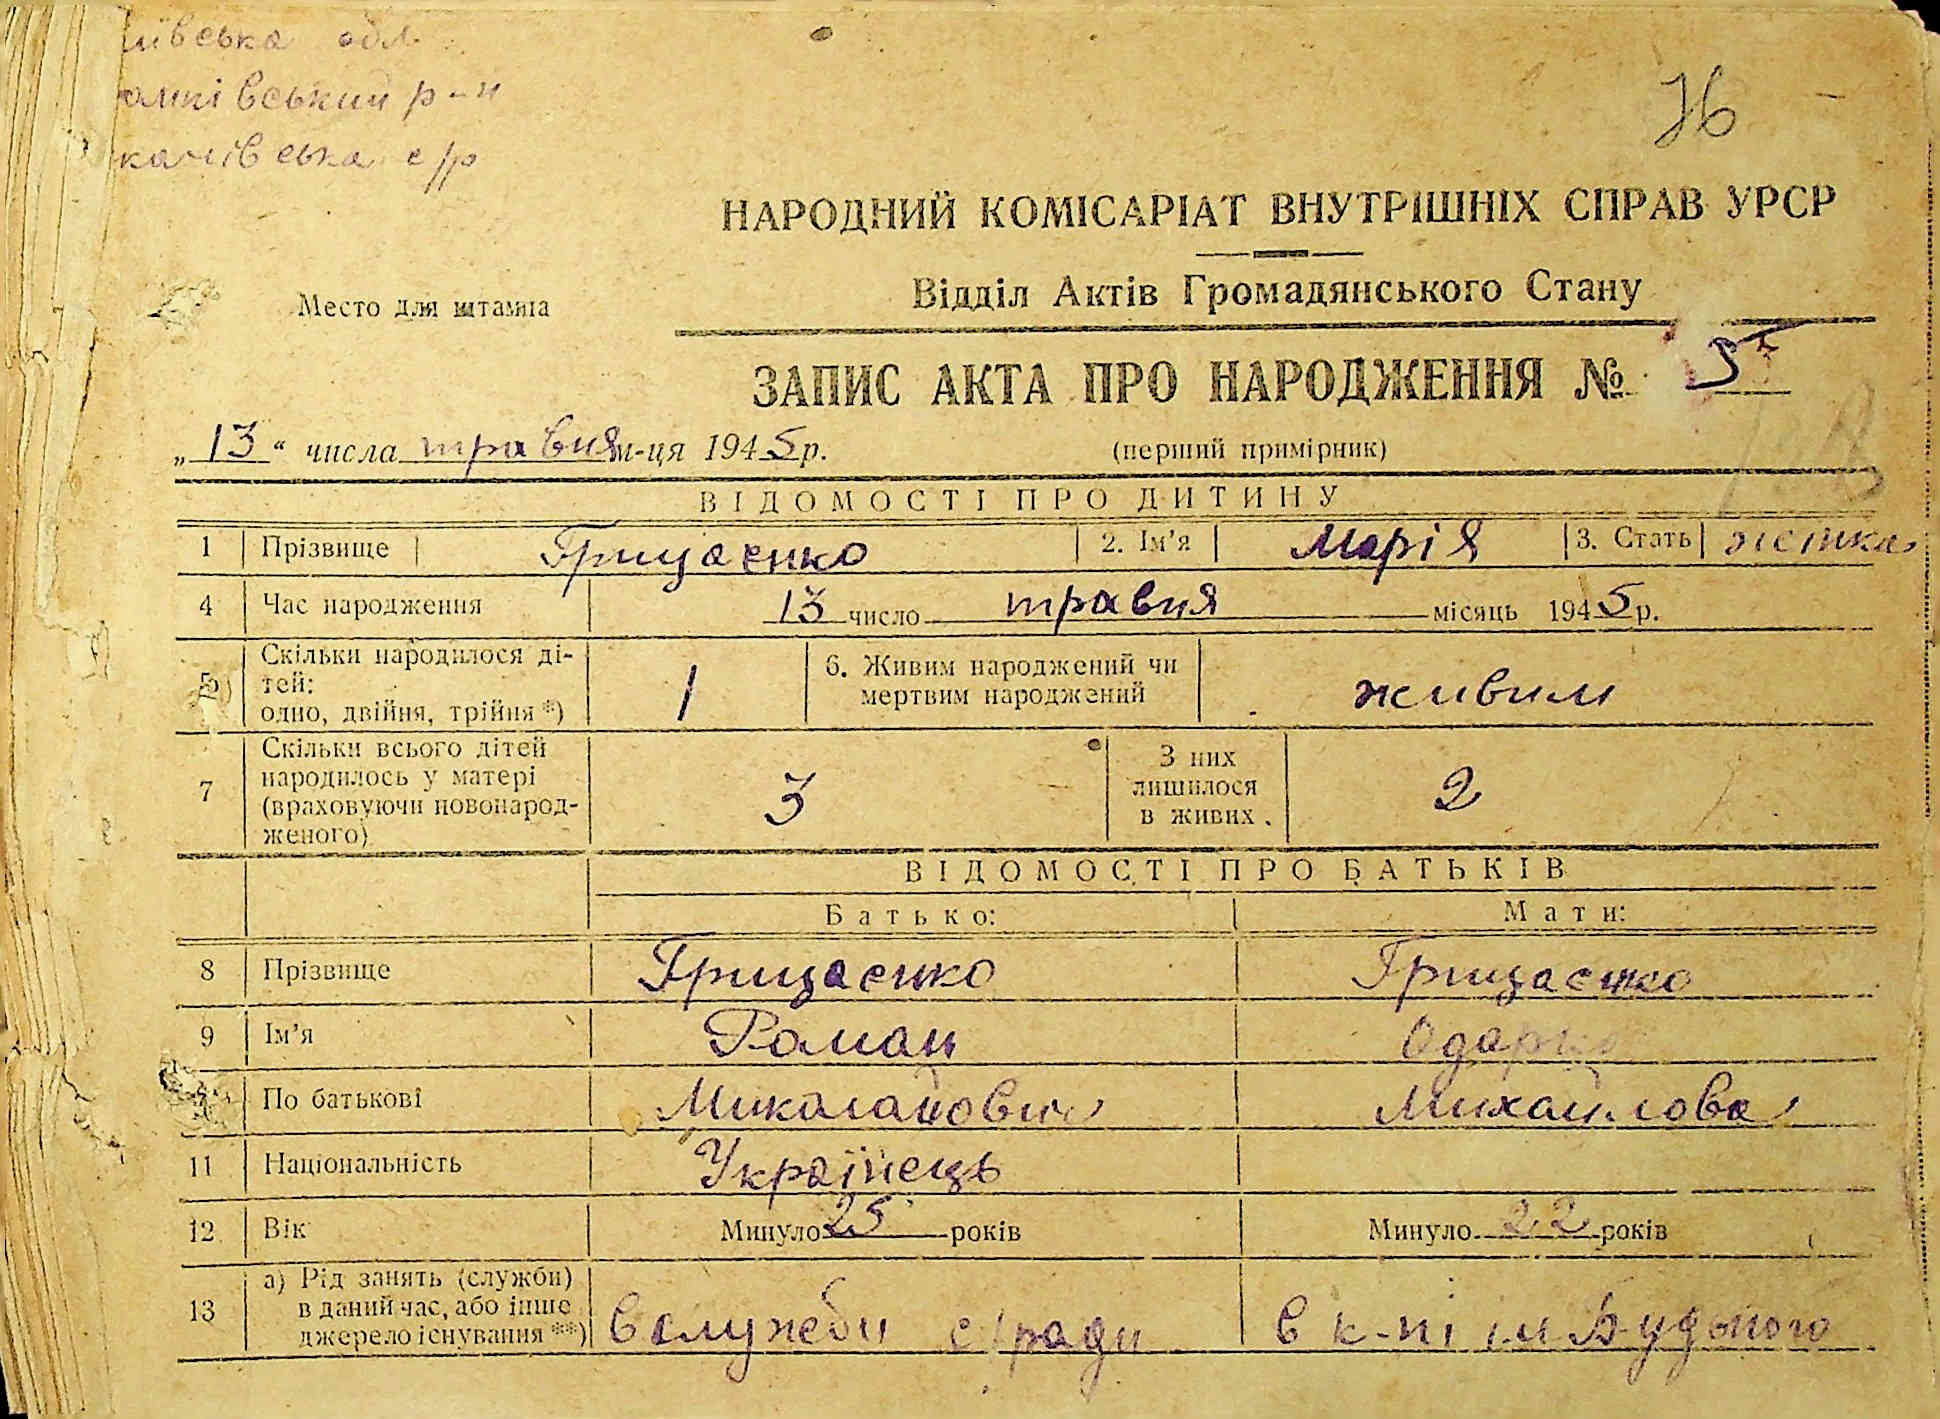 ївська обл.
ківський р-н
качівська с/р
76
НАРОДНИЙ КОМІСАРІАТ ВНУТРІШНІХ СПРАВ УРСР
Відділ Актів Громадянського Стану
Место для штампа
ЗАПИС АКТА ПРО НАРОДЖЕННЯ № 5
„13“ числа травня м-ця 1945 р. (перший примірник)
ВІДОМОСТІ ПРО ДИТИНУ
1 Прізвище Грицаєнко 2. Ім'я Марія 3. Стать жінка
4 Час народження 13 число травня місяць 1945 р.
5 Скільки народилося ді-
тей:
одно, двійня, трійня *) 1 6. Живим народжений чи
мертвим народжений живим
7 Скільки всього дітей
народилось у матері
(враховуючи новонарод-
женого) 3 З них
лишилося
в живих. 2
ВІДОМОСТІ ПРО БАТЬКІВ
Батько: Мати:
8 Прізвище Грицаєнко Грицаєнко
9 Ім'я Роман Одарка
По батькові Миколайович Михайлова
11 Національність Українець
12 Вік Минуло 25 років Минуло 22 років
13 а) Рід занять (служби)
в даний час, або інше
джерело існування **) В службі с/ради в к-пі ім Будьоного